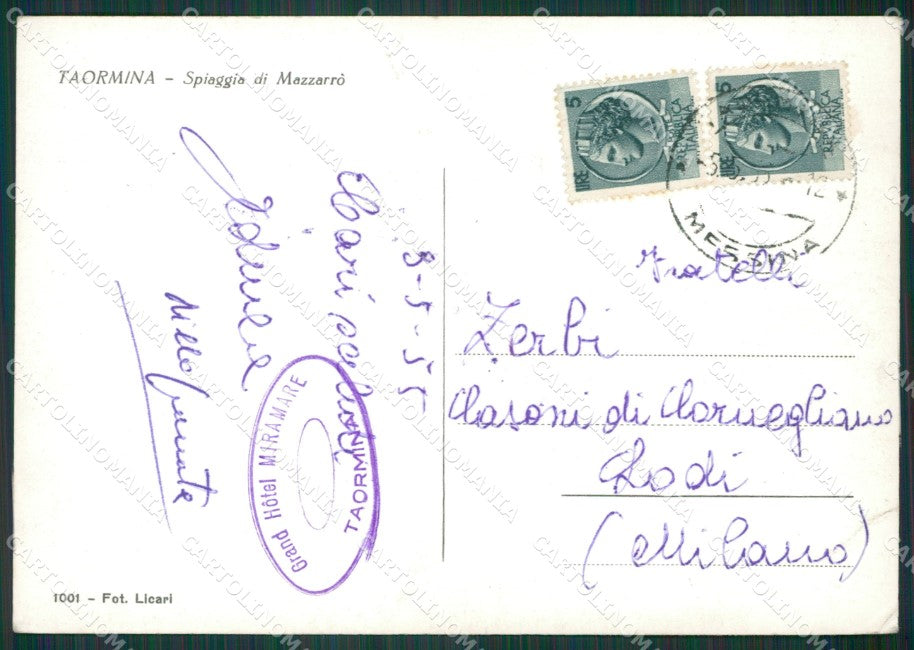 TAORMINA – Spiaggia di Mazzarrò
5
LIRE
REPUBBLICA
ITALIANA
5
LIRE
REPUBBLICA
ITALIANA
MESSINA
3-5-55
Cari saluti
Grand Hôtel MIRAMARE
TAORMINA
Fratelli
Zerbi
Casoni di Cornegliano
Lodi
(Milano)
1001 – Fot. Licari
CARTOLINOMANIA